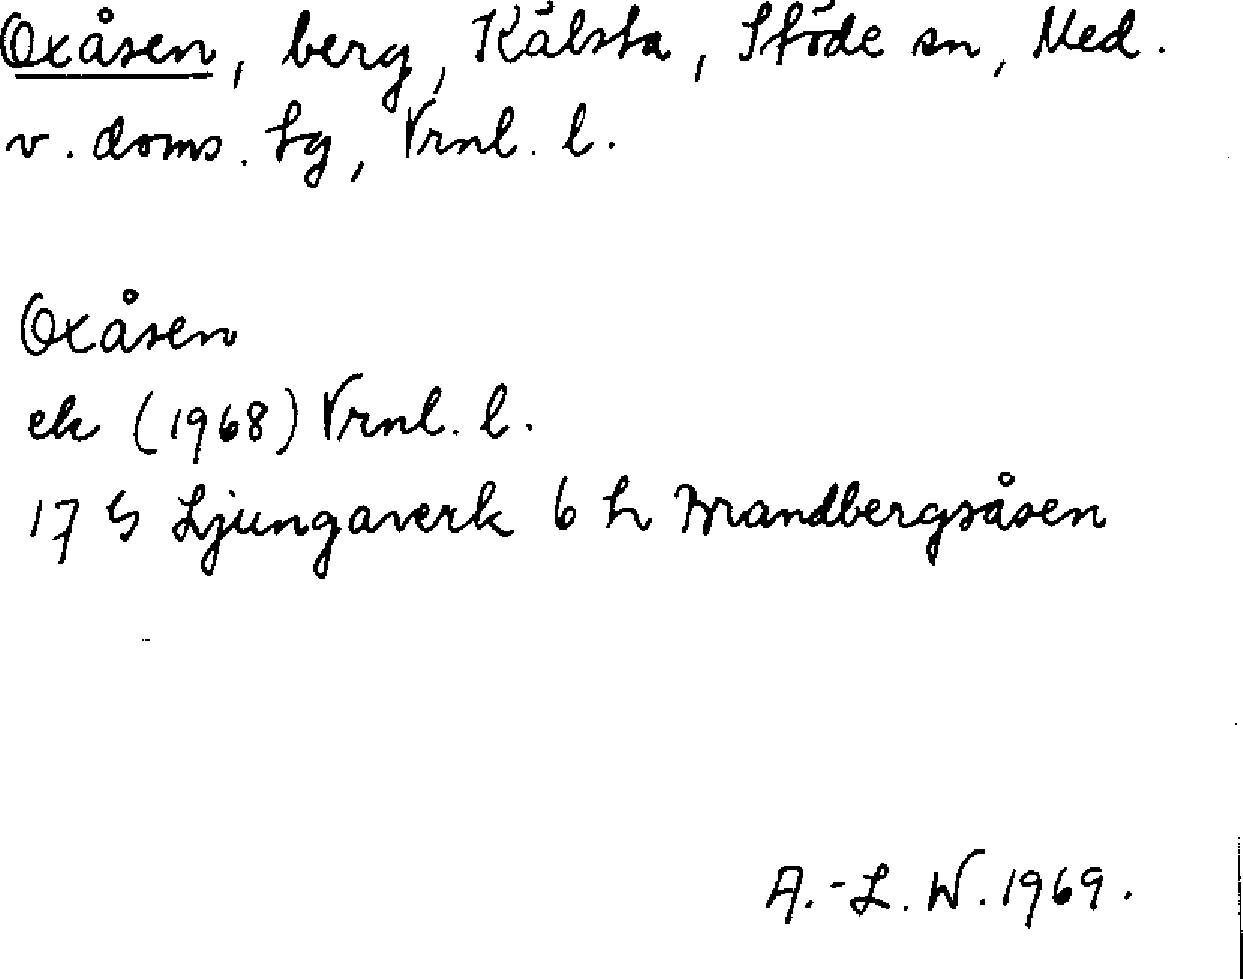 Oxåsen, berg, Kälsta, Stöde sn, Med.
v. doms. tg, Vrnl. l.
Oxåsen
ek (1968) Vrnl. l.
17 G Ljungaverk 6 h Mandbergsåsen
A.-L. W. 1969.